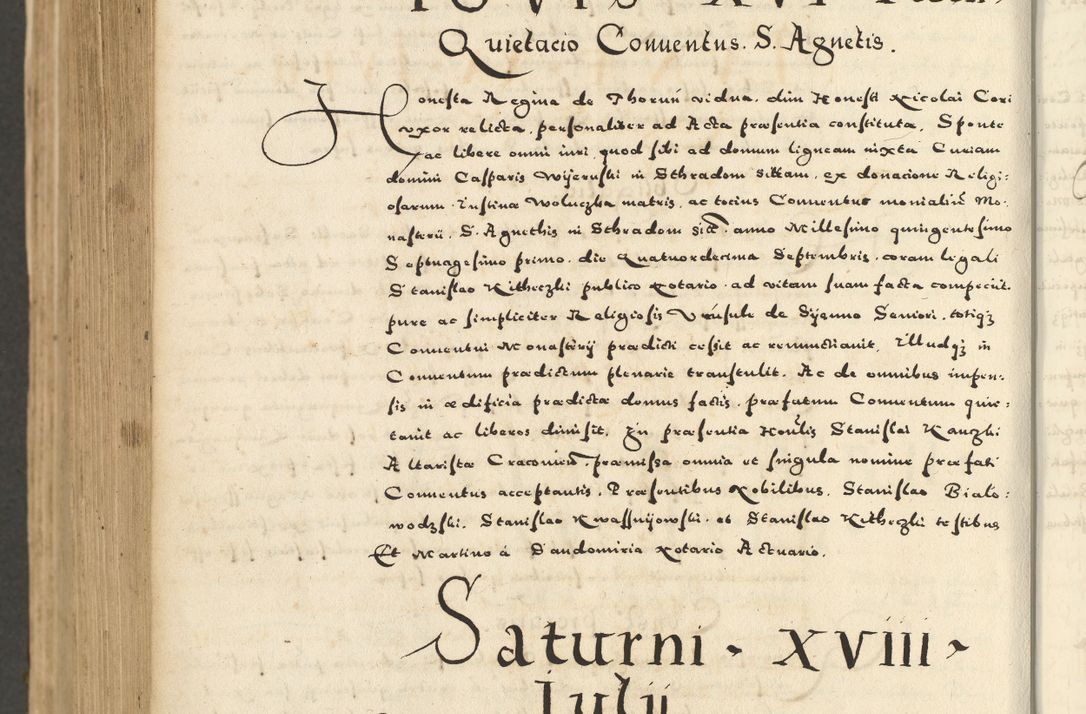 IOVIS XVI
Quietacio Conuentus. S. Agnetis.
Honesta Regina de Thoruń vidua, dim Honesti Nicolai Cori
vxor relicta, personaliter ad Acta præsentia constituta, Sponte
ac libere omni iuri quod sibi ad domum ligneam iuxta Curiam
domini Casparis Wijeruski in Sthradom sittam, ex donacione Religi:
osarum Iustinæ Woluczka matris, ac tocius Conuentus monialiũ Mo-
nasterii. S. Agnethis in Sthradom sitt. anno Millesimo quingentesimo
Septuagesimo primo, die Quatuordecima Septembris, coram legali
Stanislao Kitheczki publico Notario ad vitam suam facta competiit
pure ac simpliciter Religiosis Vrsulæ de Sijenno Seniori, totiqз
Conuentui Monasterij prædicti cessit ac renunctiauit, Illudqз in
Conuentum prædictum plenarie transtulit. Ac de omnibus impen-
sis in ædificia prædictæ domus factis, præfatum Conuentum quie:
tauit ac liberos dimisit. In præsentia Honlis Stanislai Kanczki
Altaristæ Cracouień, præmissa omnia et singula nomine præfati
Conuentus acceptantis. Præsentibus Nobilibus, Stanislao Bialo:
wodzski, Stanislao Kwassnijowski et Stanislao Kitheczki testibus
Et Martino á Sandomiria Notario Actuario.
Saturni - XVIII -
Iulij